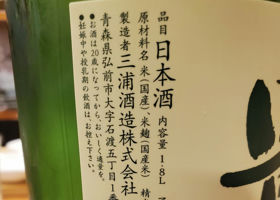 品目 日本酒 内容量 1.8L
原材料名 米(国産)、米麹(国産米) 精
製造者 三浦酒造株式会社
青森県弘前市大字石渡五丁目1番
●お酒は20歳になってから。おいしく適量を。
●妊娠中や授乳期の飲酒は、お控え下さい。